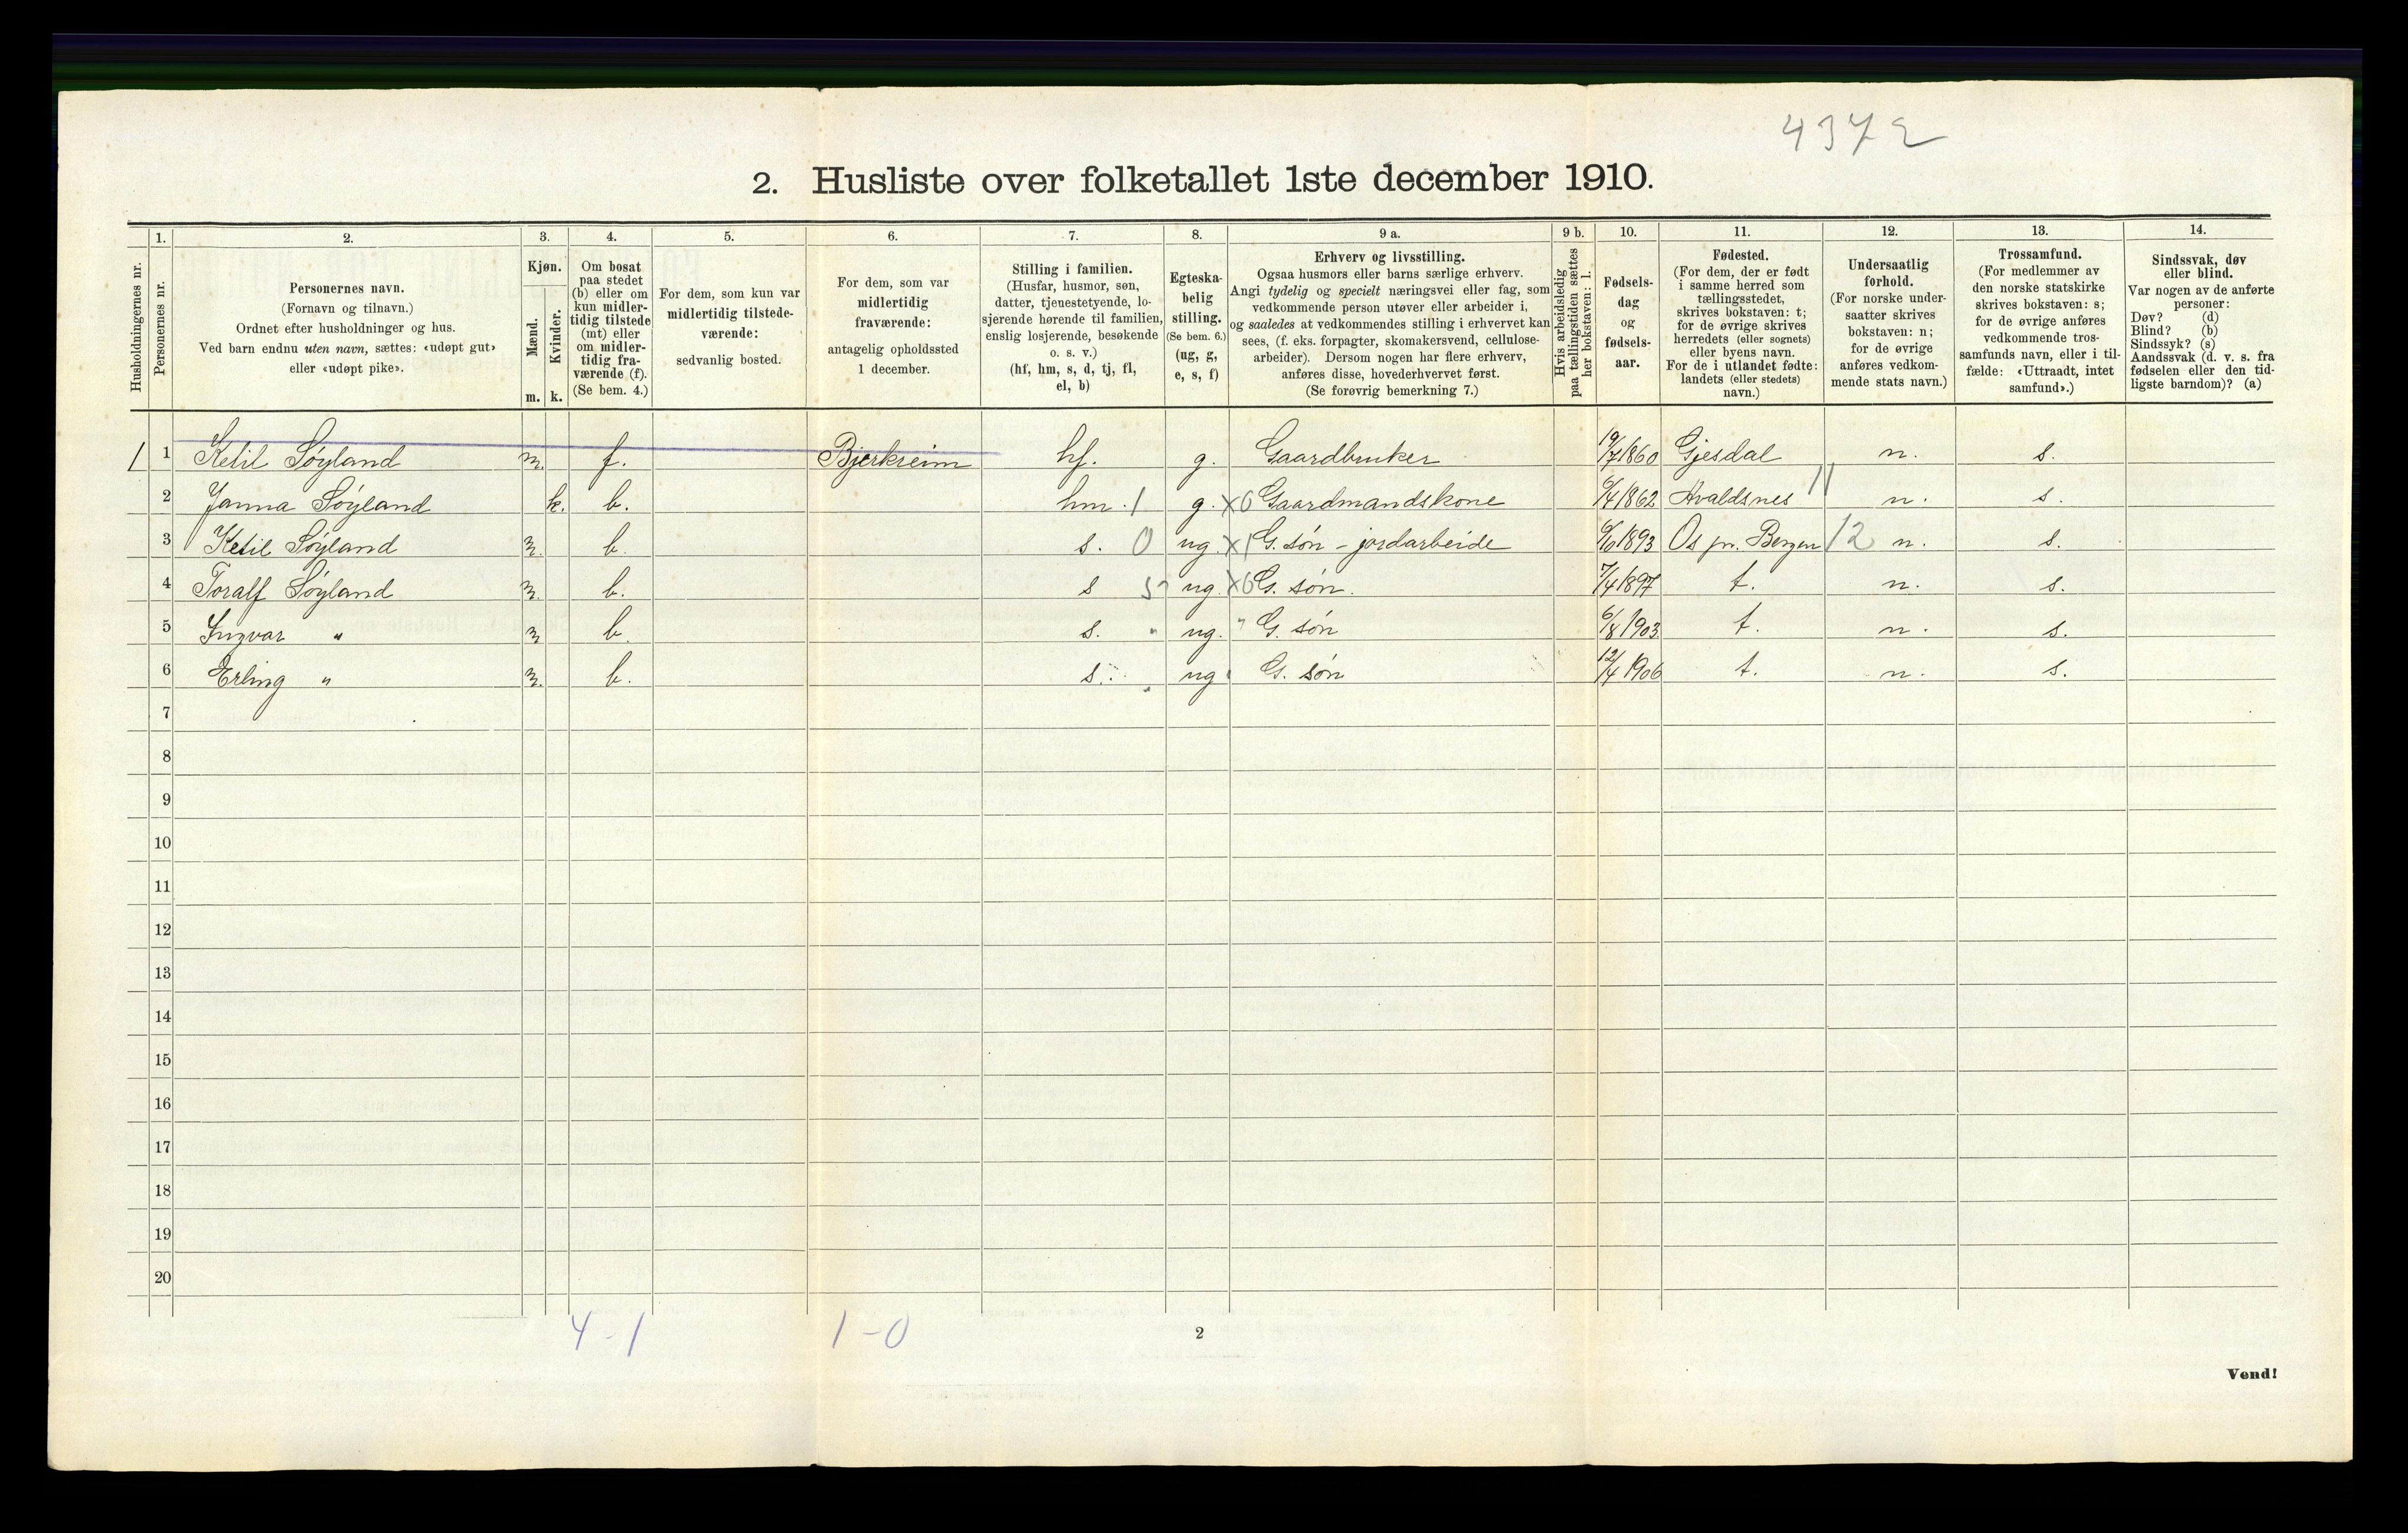 4372
2. Husliste over folketallet 1ste december 1910.
Husholdningernes nr.
1.
Personernes nr.
2.
Personernes navn.
(Fornavn og tilnavn.)
Ordnet efter husholdninger og hus.
Ved barn endnu uten navn, sættes: «udøpt gut»
eller «udøpt pike».
3.
Kjøn.
Mænd.
Kvinder.
m. k.
4.
Om bosat
paa stedet
(b) eller om
kun midler-
tidig tilstede
(mt) eller
om midler-
tidig fra-
værende (f).
(Se bem. 4.)
5.
For dem, som kun var
midlertidig tilstede-
værende:
sedvanlig bosted.
6.
For dem, som var
midlertidig
fraværende:
antagelig opholdssted
1 december.
7.
Stilling i familien.
(Husfar, husmor, søn,
datter, tjenestetyende, lo-
sjerende hørende til familien,
enslig losjerende, besøkende
o. s. v.)
(hf, hm, s, d, tj, fl,
el, b)
8.
Egteska-
belig
stilling.
(Se bem. 6.)
(ug, g,
e, s, f)
9 a.
Erhverv og livsstilling.
Ogsaa husmors eller barns særlige erhverv.
Angi tydelig og specielt næringsvei eller fag, som
vedkommende person utøver eller arbeider i,
og saaledes at vedkommendes stilling i erhvervet kan
sees, (f. eks. forpagter, skomakersvend, cellulose-
arbeider). Dersom nogen har flere erhverv,
anføres disse, hovederhvervet først.
(Se forøvrig bemerkning 7.)
9 b.
Hvis arbeidsledig
paa tællingstiden sættes
her bokstaven: l.
10.
Fødsels-
dag
og
fødsels-
aar.
11.
Fødested.
(For dem, der er født
i samme herred som
tællingsstedet,
skrives bokstaven: t;
for de øvrige skrives
herredets (eller sognets)
eller byens navn.
For de i utlandet fødte:
landets (eller stedets)
navn.)
12.
Undersaatlig
forhold.
(For norske under-
saatter skrives
bokstaven: n;
for de øvrige
anføres vedkom-
mende stats navn.)
13.
Trossamfund.
(For medlemmer av
den norske statskirke
skrives bokstaven: s;
for de øvrige anføres
vedkommende tros-
samfunds navn, eller i til-
fælde: «Uttraadt, intet
samfund».)
14.
Sindssvak, døv
eller blind.
Var nogen av de anførte
personer:
Døv? (d)
Blind? (b)
Sindssyk? (s)
Aandssvak (d. v. s. fra
fødselen eller den tid-
ligste barndom)? (a)
1 1 Ketil Søyland m. f. Bjerkreim hf. g. Gaardbruker 19/7 1860 Gjesdal n. s.
2 Janna Søyland k. b. hm. 1 g. X0 Gaardmandskone 6/4 1862 Avaldsnes 11 n. s.
3 Ketil Søyland m. b. s. 0 ug. X1 G. søn - jordarbeide 6/10 1893 Os pr. Bergen 12 n. s.
4 Toralf Søyland m. b. s ug. X0 G. søn. 7/4 1897 t. n. s.
5 Ingvar " m b. s. " ug. " G. søn 6/8 1903 t. n. s.
6 Erling " m. b. s. " ug " G. søn 12/4 1906 t. n. s.
7
8
9
10
11
12
13
14
15
16
17
18
19
20
4 - 1 1 - 0
2
Vend!